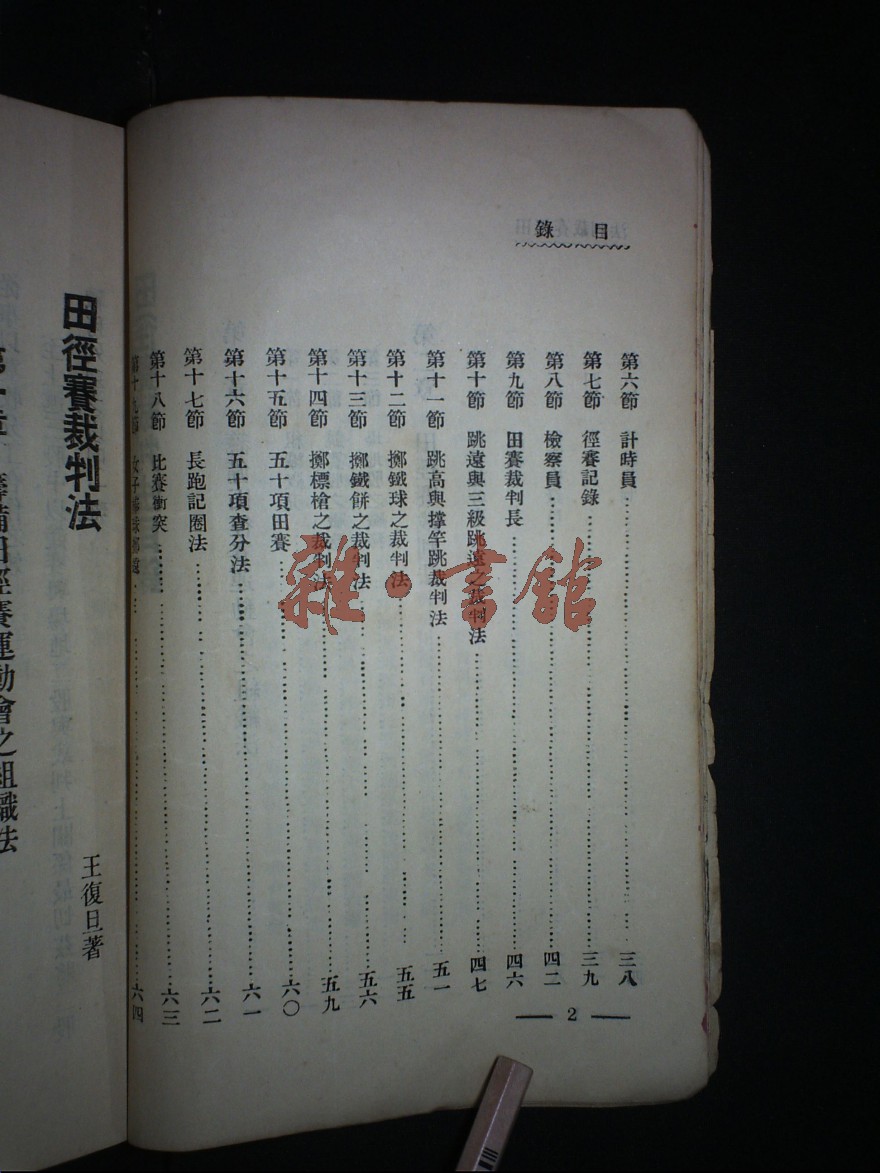 目錄
第六節 計時員 三八
第七節 徑賽記錄 三九
第八節 檢察員 四二
第九節 田賽裁判長 四六
第十節 跳遠與三級跳遠之裁判法 四七
第十一節 跳高與撐竿跳裁判法 五一
第十二節 擲鐵球之裁判法 五五
第十三節 擲鐵餅之裁判法 五六
第十四節 擲標槍之裁判法 五九
第十五節 五十項田賽 六〇
第十六節 五十項查分法 六一
第十七節 長跑記圈法 六二
第十八節 比賽衝突 六三
第十九節 女子 六四
2
田徑賽裁判法
王復旦著
第一章 籌備田徑賽運動會之組織法
雜·書館